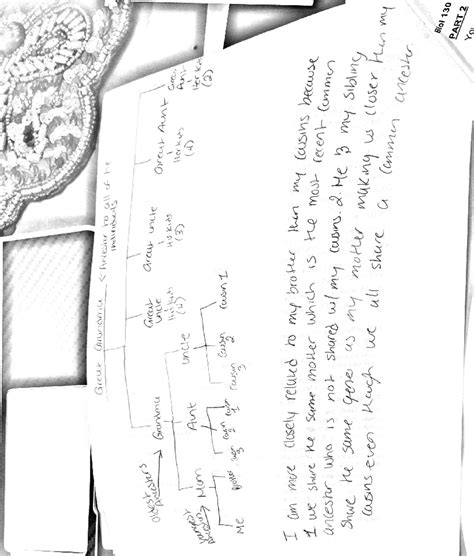 Biol 130
PART 2
Great Grandma < Ancestor to all of the
individuals
oldest ancestors
Grandma
Great
uncle
Her kids
(2)
Great uncle
Her kids
(3)
Great Aunt
Her kids
(2)
Great
Aunt
Her kids
(2)
Mom
Aunt
uncle
Me
cousin 1
I am more closely related to my brother then my cousins because
1 we share the same mother which is the most recent common
ancestor who is not shared w/ my cousins. 2. Me & my sibling
share the same genes as my mother making us closer than my
cousins even though we all share a common ancestor